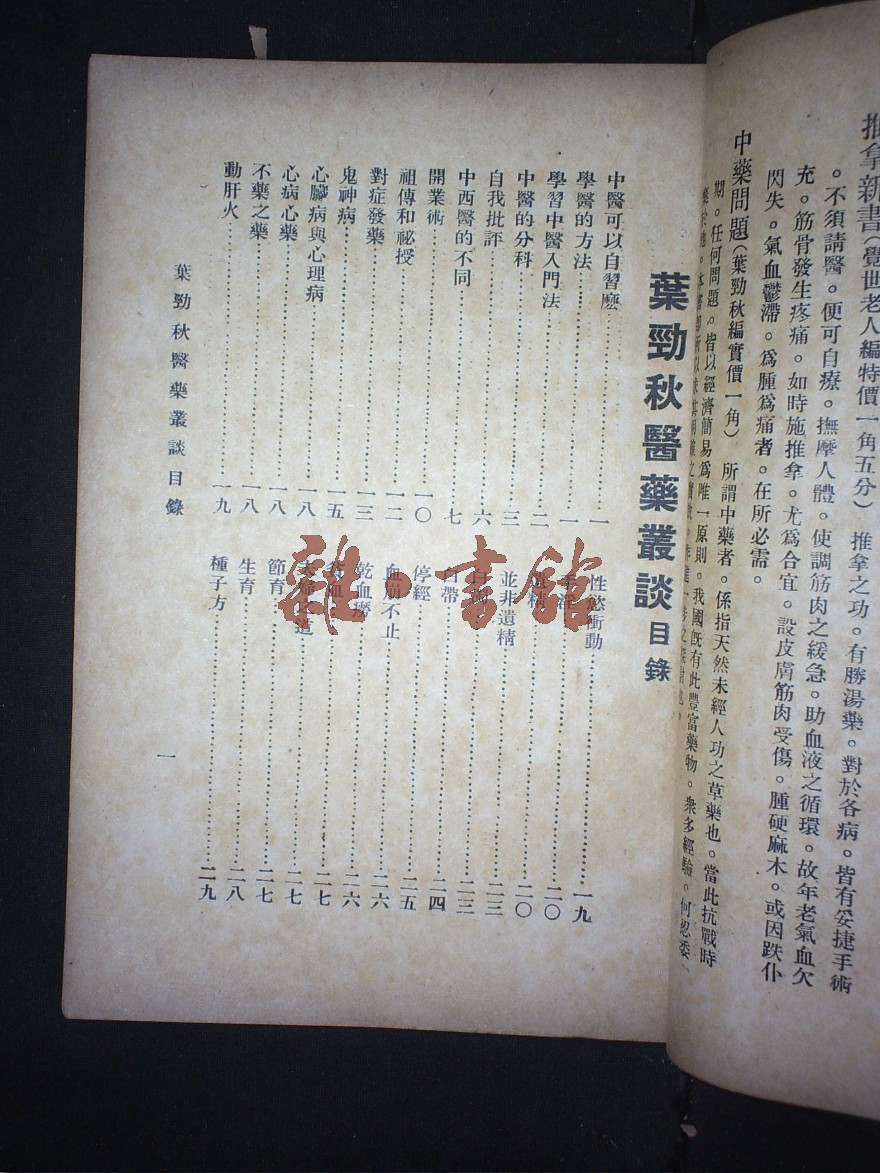 推拿新書(覺世老人編特價一角五分) 推拿之功。有勝湯藥。對於各病。皆有妥捷手術
。不須請醫。便可自療。撫摩人體。使調筋肉之緩急。助血液之循環。故年老氣血欠
充。筋骨發生疼痛。如時施推拿。尤爲合宜。設皮膚筋肉受傷。腫硬麻木。或因跌仆
閃失。氣血鬱滯。爲腫爲痛者。在所必需。
中藥問題(葉勁秋編實價一角) 所謂中藥者。係指天然未經人功之草藥也。當此抗戰時
期。任何問題。皆以經濟簡易爲唯一原則。我國旣有此豐富藥物。衆多經驗。何忍委
葉勁秋醫藥叢談目錄
中醫可以自習麽……一
學醫的方法……一
學習中醫入門法……二
中醫的分科……三
自我批評……六
中西醫的不同……七
開業術……一〇
祖傳和祕授……一二
對症發藥……一三
鬼神病……一五
心臟病與心理病……一八
心病心藥……一八
不藥之藥……一八
動肝火……一九
性慾衝動……一九
手淫……二〇
遺精……二〇
並非遺精……二三
白帶……二四
停經……二五
血崩不止……二六
乾血癆……二六
夫婦之道……二七
節育……二七
生育……二八
種子方……二九
葉勁秋醫藥叢談目錄
一
雜·書館